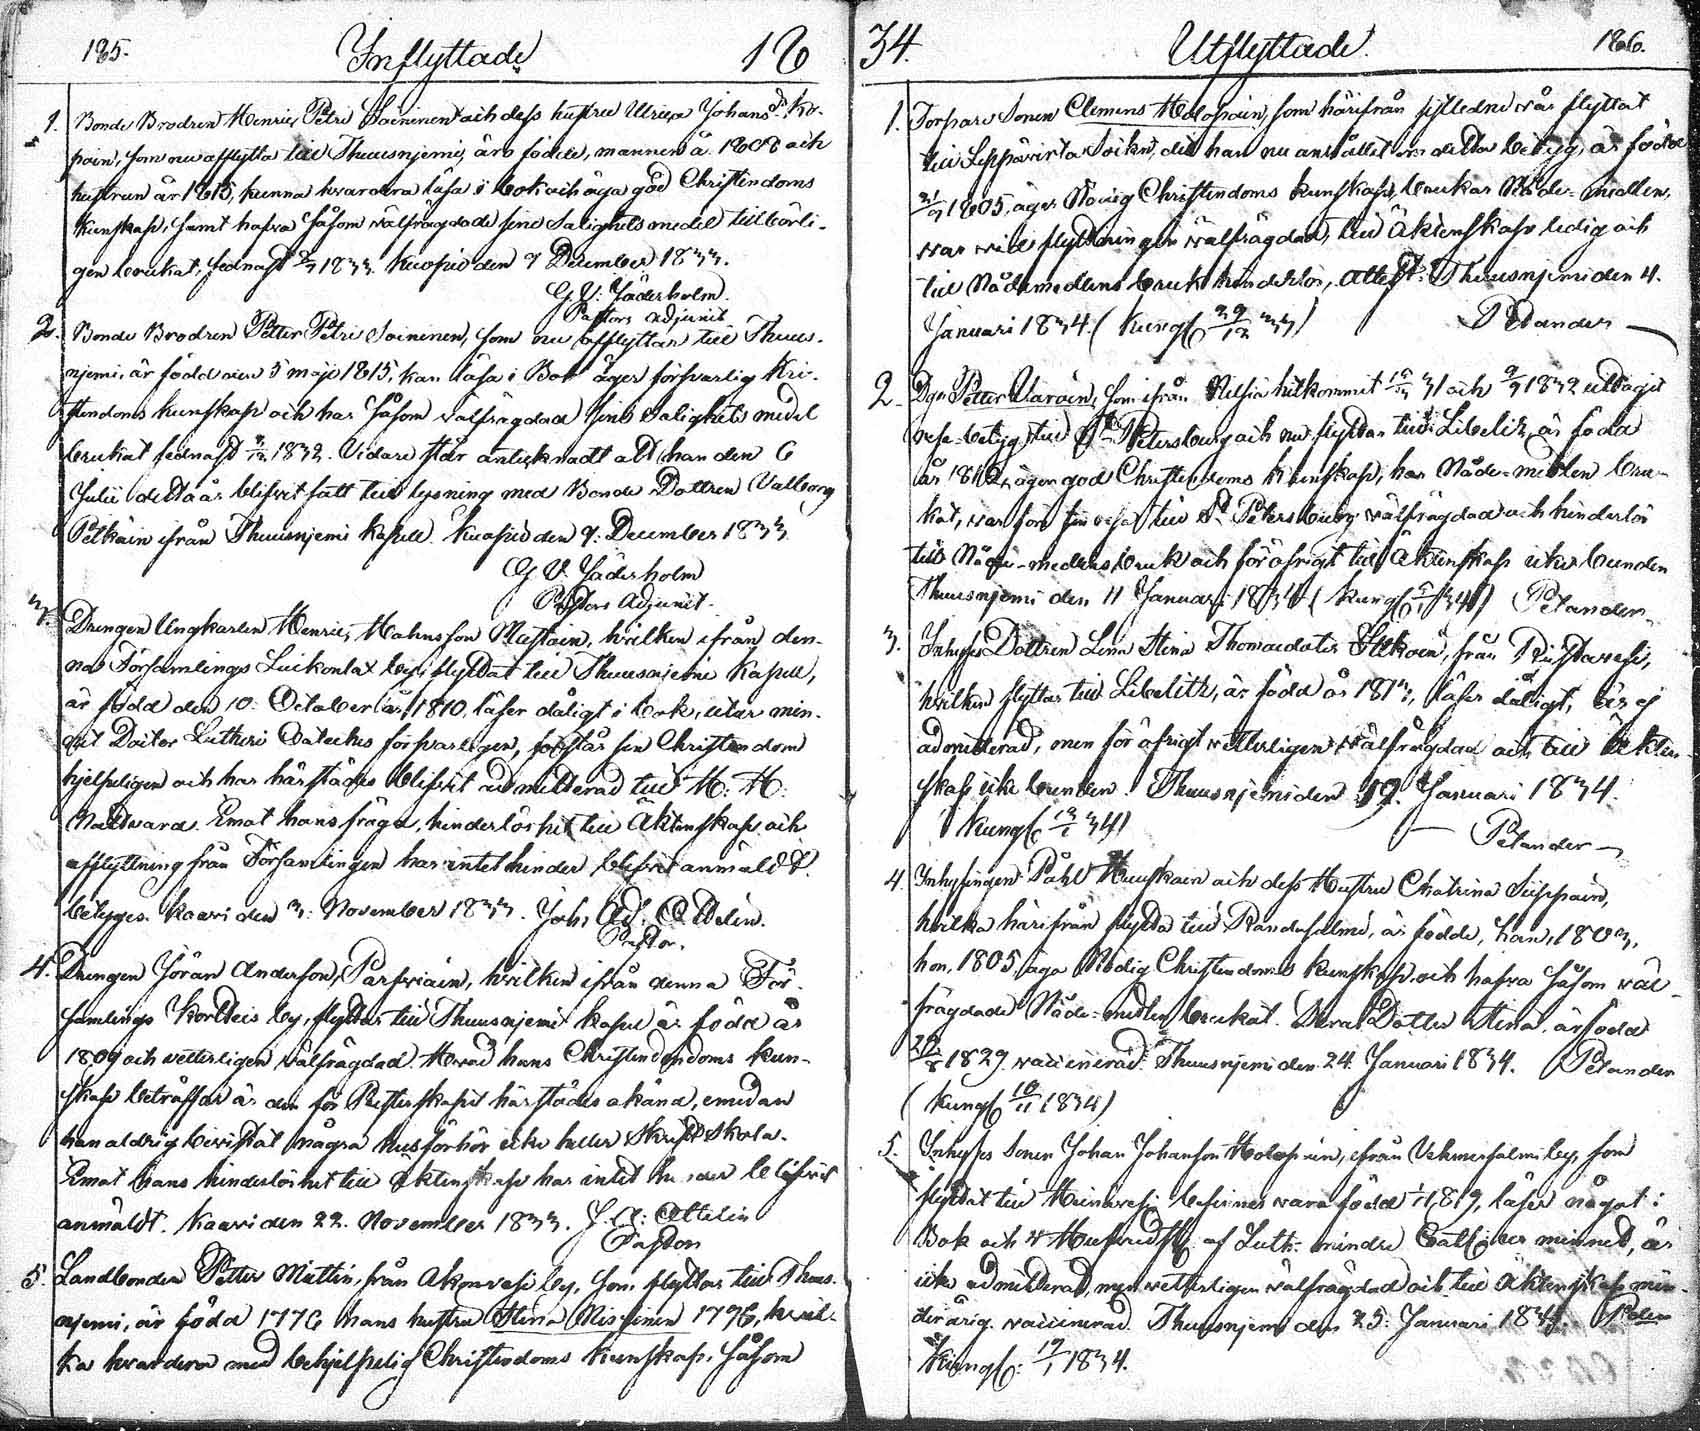 185. Inflyttade 18
1. Bonde Brodren Henric Petri Soininen och dess hustru Ulrica Johansdr Ko-
poin, som nu afflytta till Thuusnjemi, äro födde, mannen å. 1808 och
hustrun år 1815, kunna hvardera läsa i bok och äga god Christendoms
Kunskap, samt hafva såsom välfrägdade sine Salighets medel tillbörli-
gen brukat, sednast 1833. Kuopio den 7 December 1833.
G. V. Jäderholm.
Pastors adjunct
2. Bonde Brodren Petter Petri Soininen, som nu afflyttar till Thuus-
njemi, är född den 5 maji 1815, kan läsa i Bok äger försvarlig Kri-
stendoms kunskap och har såsom välfrägdad sine Salighets medel
brukat sednast 1832. Vidare står anteknadt att han den 6
Julii detta år blifvit satt till lysning med Bonde Dottren Valborg
Pitkäin ifrån Thuusnjemi Kapell. Kuopio den 7. December 1833
G V. Jäderholm
Pastors Adjunct.
3. Drengen Ungkarlen Henric Mahnsson Mustoin, hvilken ifrån den-
na Församlings Luikonlax by, flyttat till Thuusnjemi Kapell,
är född den 10. October år 1810, läser dåligt i bok, utur min-
net Doctor Lutheri Cateches försvarligen, förstår sin Christendom
hjelpeligen och har härstädes blifvit admitterad till H. H.
Nattvard. Emot hans frägd, hinderlöshet till Äktenskap och
afflyttning från Församlingen har intet hinder blifvit anmäldt.
betygas. Kaavi den 3. November 1833. Joh. Ad. Ottelin.
Pastor.
4. Drengen Jöran Andersson Parfviäin, hvilken ifrån denna För-
samlings Kortteis by, flyttar till Thuusnjemi Kapell är född år
1809 och vetterligen välfrägdad. Hvad hans Christendoms kun-
skap beträffar är den för Presterskapet härstädes okänd, emedan
han aldrig bevistat några husförhör eller heller Skrift Skola.
Emot hans hinderlöshet till äktenskap har intet hinder blifvit
anmäldt. Kaavi den 22. November 1833. J. A. Ottelin
Pastor
5. Landbonden Petter Miettin, från Akonvesi by, som flyttar till Thuus-
njemi, är född 1776 hans hustru Stina Nissinen 1776, hvil-
ka hvardera med behjelpelig Christendoms Kunskap, såsom
34. Utflyttade. 186.
1. Torpare Sonen Clemens Holopain, som härifrån sistledne vår flyttat
till Leppävirta Sockn, dit han nu anhållit om detta betyg, är född
1805, äger Nödig Christendoms kunskap, brukar Nåde-medlen,
var vid flyttningen välfrägdad, till Äktenskap ledig och
till Nådemedlens bruk hinderlös, Attest. Thuusnjemi den 4.
Januari 1834. (Kungj. 29/12 33) Pelander
2. Dgn Petter Varoin, som ifrån Nilsiä hitkommit 31 och 1832 uttagit
rese-betyg till St Petersburg och nu flyttar till Libelitz, är född
år 1812, äger god Christendoms kunskap, har Nåde-medlen bru-
kat, var för sin resa till St Petersburg välfrägdad och hinderlös
till Nåde-medlens bruk och för öfrigt till Äktenskap icke bunden
Thuusnjemi den 11 Januari 1834 (Kungj. 34) Pelander
3. Inhyses Dottren Lena Stina Thomaedotter Itkoin, från Riistavesi,
hvilken flyttar till Libelitz, är född år 1813, läser dåligt, är ej
admitterad, men för öfrigt vetterligen välfrägdad och till Äkten-
skap icke bunden. Thuusnjemi den 19. Januari 1834.
Kungj. 34) Pelander
4. Inhysingen Påhl Huuskain och dess Hustru Chatrina Siippain,
hvilka härifrån flytta till Randasalmi, är födde, han, 1803,
hon, 1805, äga Nödig Christendoms kunskap och hafva såsom väl-
frägdade Nåde-medlen brukat. Deras Dotter Stina, är född
1829. vaccinerad. Thuusnjemi den 24. Januari 1834. Pelander
(Kungj. 1834)
5. Inhyses Sonen Johan Johansson Holopain, ifrån Vehmersalmi by, som
flyttat till Heinävesi befinnes vara född 1819, läser något i
Bok och 4 Hufvudst. af Luth. mindre Catches ur minnet, är
icke admitterad, men vetterligen välfrägdad och till äktenskap min-
derårig. vaccinerad. Thuusnjemi den 25. Januari 1834.
Kungj. 1834.